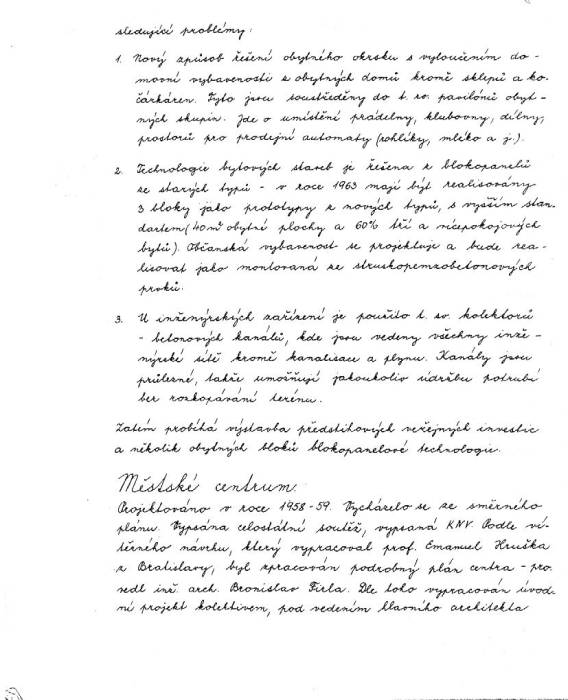 sledující problémy:
1. Nový způsob řešení obytného okrsku s vyloučením do-
movní vybavenosti z obytných domů kromě sklepů a ko-
čárkáren. Tyto jsou soustředěny do t. zv. pavilónů obyt-
ných skupin. Jde o umístění prádelny, klubovny, dílny,
prostorů pro prodejní automaty (rohlíky, mléko a j.).
2. Technologie bytových staveb je řešena z blokopanelů
ze starých typů - v roce 1963 mají být realisovány
3 bloky jako prototypy z nových typů, s vyšším stan-
dartem (40 m² obytné plochy a 60% tří a vícepokojových
bytů). Občanská vybavenost se projektuje a bude rea-
lisovat jako montovaná ze struskopemzobetonových
prvků.
3. U inženýrských zařízení je použito t. zv. kolektorů
- betonových kanálů, kde jsou vedeny všechny inže-
nýrské sítě kromě kanalisace a plynu. Kanály jsou
průlezné, takže umožňují jakoukoliv údržbu potrubí
bez rozkopávání terénu.
Zatím probíhá výstavba předstihových veřejných investic
a několik obytných bloků blokopanelové technologie.
Městské centrum.
Projektováno v roce 1958-59. Vycházelo se ze směrného
plánu. Vypsána celostátní soutěž, vypsaná KNV. Podle ví-
těrného návrhu, který vypracoval prof. Emanuel Hruška
z Bratislavy, byl zpracován podrobný plán centra - pro-
vedl inž. arch. Bronislav Firla. Dle toho vypracován úvod-
ní projekt kolektivem, pod vedením hlavního architekta